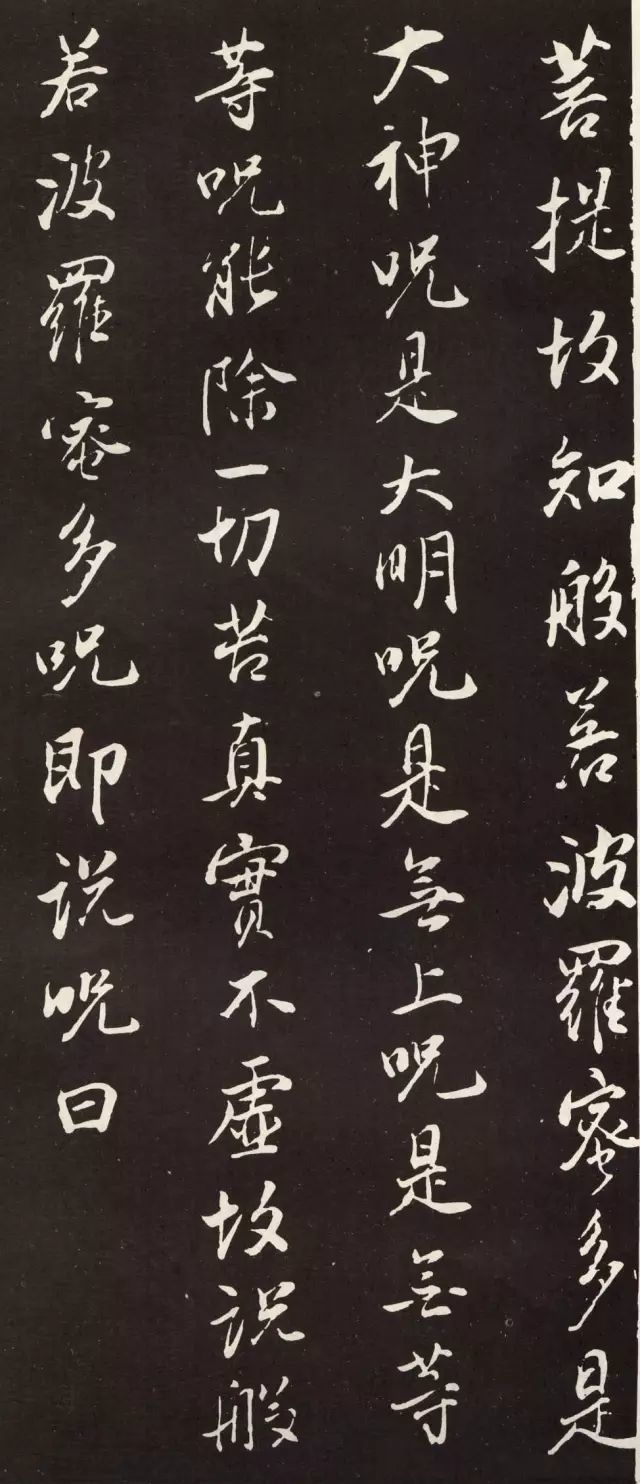 菩提故知般若波羅蜜多是
大神呪是大明呪是無上呪是無等
等呪能除一切苦真實不虛故説般
若波羅蜜多呪即説呪曰